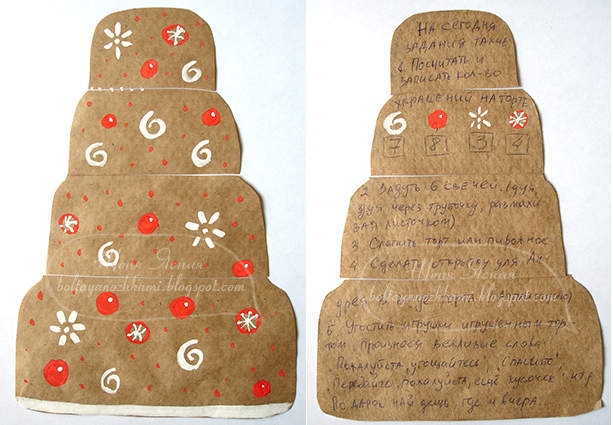 6
6
6
6
6
6
6
Тоня Ясния
boltayanozhkami.blogspot.com
На сегодня
задания такие
1. Посчитать и
записать кол-во
украшений на торте
6
7 8 3 4
2. Задуть 6 свечей (дуя
через трубочку, размахи
вая листочком)
3. Слепить торт или пирожное
4. Сделать открытку для Ан-
Тоня Ясния
boltayanozhkami.blogspot.com
дрея в виде торта (
5. Угостить игрушки игрушечным тор
том, произнося вежливые слова:
"Пожалуйста, угощайтесь", "Спасибо"
"Передайте, пожалуйста, ещё кусочек" и т.д
Подарок найдешь, где и вчера.